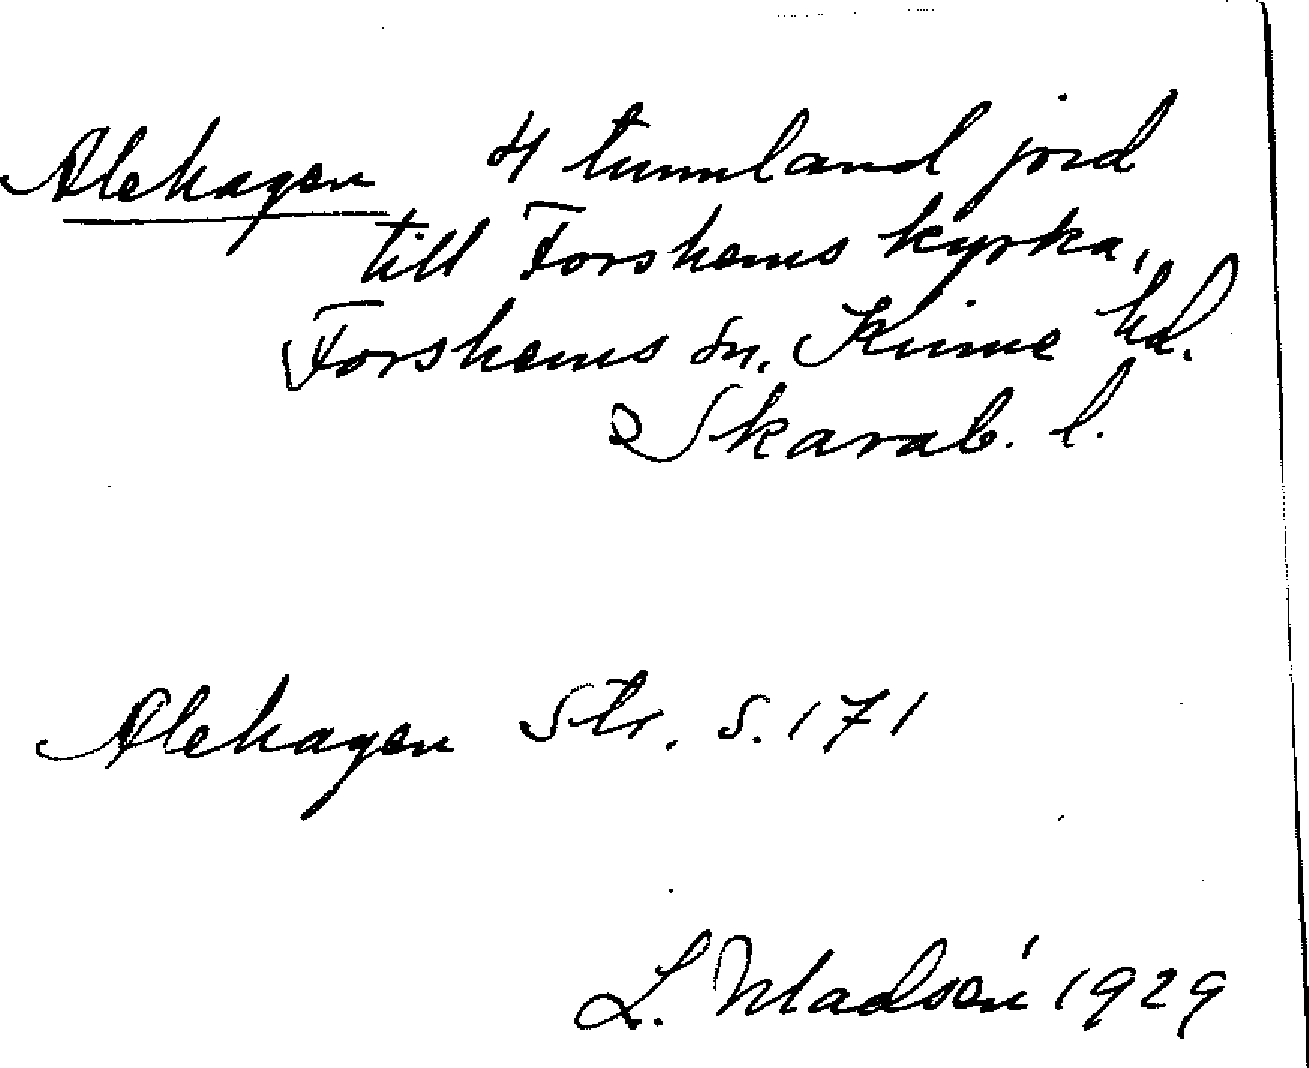 Alehagen 4 tunnland jord
till Forshems kyrka,
Forshems sn, Kinne hd.
Skarab. l.
Alehagen Str. S. 171
L. Madsén 1929